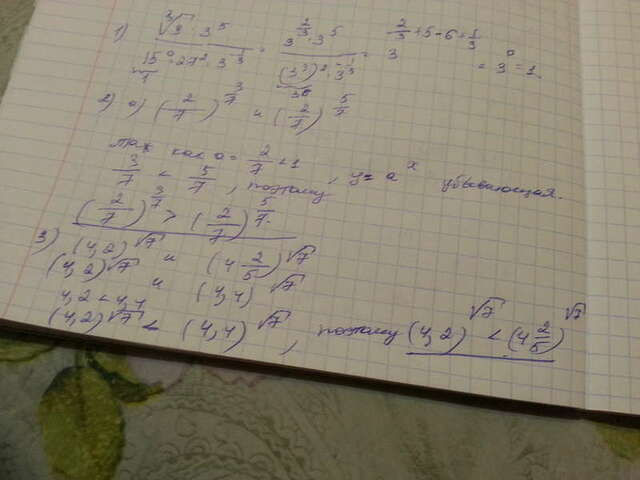 1) ∛3² · 3⁵ / 15⁰ · 27² · 3^(-1/3) = 3^(2/3) · 3⁵ / (3³)² · 3^(-1/3) = 3^(2/3+5-6+1/3) = 3⁰ = 1.
1 3⁶
2) а) (2/7)^(3/7) и (2/7)^(5/7)
так как a = 2/7 < 1
3/7 < 5/7, поэтому, y = a^x убывающая.
(2/7)^(3/7) > (2/7)^(5/7)
3) (4,2)^√7
(4,2)^√7 и (4 2/5)^√7
4,2 < 4,4 и (4,4)^√7
(4,2)^√7 < (4,4)^√7, поэтому (4,2)^√7 < (4 2/5)^√7